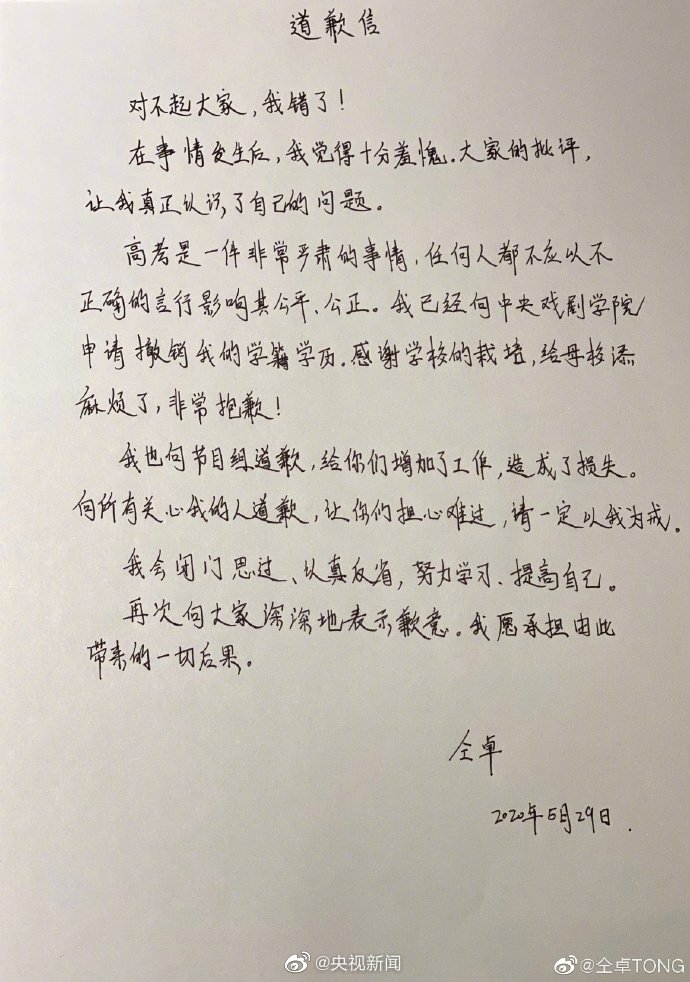 道歉信
对不起大家，我错了！
在事情发生后，我觉得十分羞愧.大家的批评，
让我真正认识了自己的问题。
高考是一件非常严肃的事情，任何人都不应以不
正确的言行影响其公平、公正。我已经向中央戏剧学院
申请撤销我的学籍学历.感谢学校的栽培，给母校添
麻烦了，非常抱歉！
我也向节目组道歉，给你们增加了工作，造成了损失。
向所有关心我的人道歉，让你们担心难过，请一定以我为戒.
我会闭门思过、认真反省，努力学习、提高自己。
再次向大家深深地表示歉意。我愿承担由此
带来的一切后果。
仝卓
2020年5月29日.
@央视新闻
@仝卓TONG